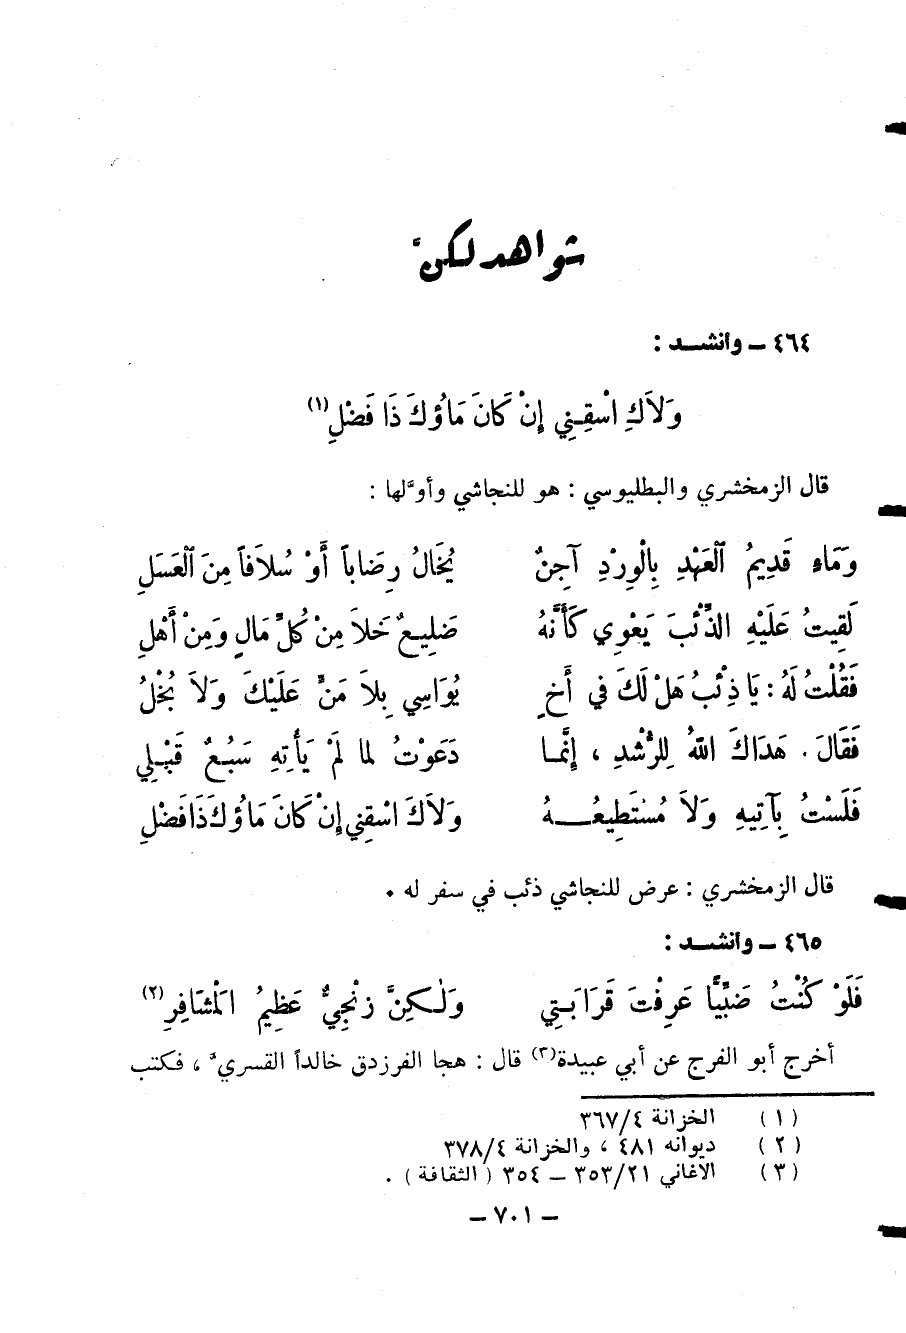 شواهد لكنَّ
٤٦٤ ــ وأنشــد :
وَلاَكِ اسْقِنِي إِنْ كَانَ مَاؤُكَ ذَا فَضْلِ(١)
قال الزمخشري والبطليوسي : هو للنجاشي وأوَّلها :
وَمَاءٍ قَدِيمُ ٱلعَهْدِ بِالْوِرْدِ آجِنٌ يُخَالُ رِضَاباً أَوْ سُلاَفاً مِنَ ٱلْعَسَلِ
لَقِيتُ عَلَيْهِ الذِّئْبَ يَعْوِي كَأَنَّهُ ضَلِيعٌ خَلاَ مِنْ كُلِّ مَالٍ وَمِنْ أَهْلِ
فَقُلْتُ لَهُ : يَا ذِئْبُ هَلْ لَكَ فِي أَخٍ يُوَاسِي بِلاَ مَنٍّ عَلَيْكَ وَلاَ بُخْلُ
فَقَالَ . هَدَاكَ اللهُ لِلرُّشْدِ ، إِنَّمـا دَعَوْتُ لمَا لَمْ يَأْتِهِ سَبُعٌ قَبْـلِي
فَلَسْتُ بِآتِيهِ وَلاَ مُسْتَطِيعُــــهُ وَلاَكَ اسْقِنِي إِنْ كَانَ مَاؤُكَ ذَا فَضْلِ
قال الزمخشري : عرض للنجاشي ذئب في سفر له ٠
٤٦٥ ــ وأنشــد :
فَلَوْ كُنْتُ ضَبِّيّاً عَرِفْتَ قَرَابَتِي وَلٰـكِنَّ زَنْجِيٌّ عَظِيمُ الْمَشَافِرِ(٢)
أخرج أبو الفرج عن أبي عبيدة(٣) قال : هجا الفرزدق خالداً القسريَّ ، فكتب
(١) الخزانة ٣٦٧/٤
(٢) ديوانه ٤٨١ ، والخزانة ٣٧٨/٤
(٣) الاغاني ٣٥٣/٢١ ــ ٣٥٤ ( الثقافة ) .
ــ ٧٠١ ــ